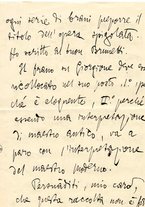 ogni serie di brani preporre il
titolo dell'opera spogliata.
Ho scritto al buon Brunelli.
Il brano su Giorgione dove va
ricollocato nel suo posto. I° per-
chè è eloquente, II° perchè
essendo una interpretazione
di maestro antico, va a
paro con l'interpretazione
del maestro moderno.
Persuaditi, mio caro,
che questa raccolta non è